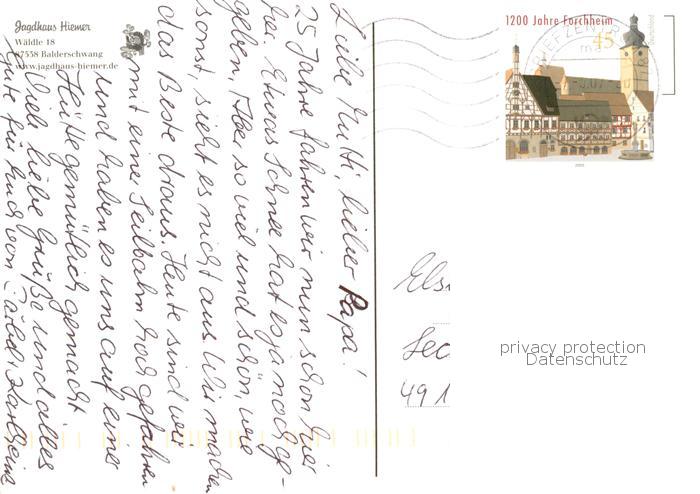 Jagdhaus Hiemer
Wäldle 18
87538 Balderschwang
www.jagdhaus-hiemer.de
Liebe Mutti, lieber Papa!
25 Jahre fahren wir nun schon hier
her. Etwas Schnee hat es ja noch ge-
geben, aber so viel und schön, wie
sonst, sieht es nicht aus. Wir machen
das Beste draus. Heute sind wir
mit einer Seilbahn hoch gefahren
und haben es uns auf einer
Hütte gemütlich gemacht
Viele liebe Grüße und alles
Gute für Euch von
1200 Jahre Forchheim
45
Deutschland
BRIEFZEN
Elsi
49 1
privacy protection
Datenschutz